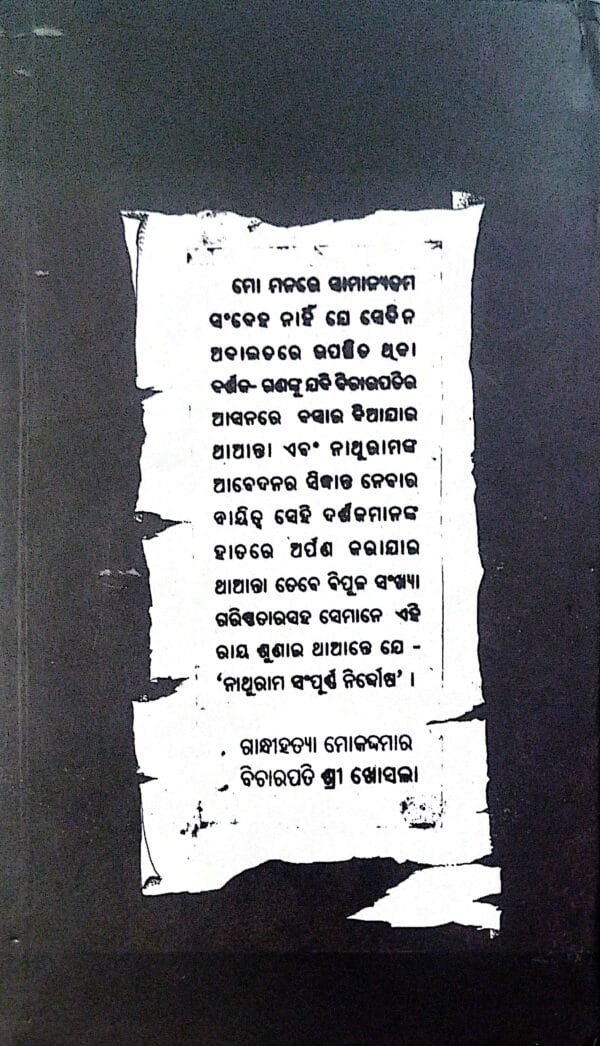 ମୋ ମନରେ ସାମାନ୍ୟତମ
ସଂଦେହ ନାହିଁ ଯେ ସେଦିନ
ଅଦାଲତରେ ଉପସ୍ଥିତ ଥିବା
ଦର୍ଶକ- ଗଣଙ୍କୁ ଯଦି ବିଚାରପତିର
ଆସନରେ ବସାଇ ଦିଆଯାଇ
ଥାଆନ୍ତା ଏବଂ ନାଥୁରାମଙ୍କ
ଆବେଦନର ସିଦ୍ଧାନ୍ତ ନେବାର
ଦାୟିତ୍ୱ ସେହି ଦର୍ଶକମାନଙ୍କ
ହାତରେ ଅର୍ପଣ କରାଯାଇ
ଥାଆନ୍ତା ତେବେ ବିପୁଳ ସଂଖ୍ୟା
ଗରିଷ୍ଠତାରସହ ସେମାନେ ଏହି
ରାୟ ଶୁଣାଇ ଥାଆନ୍ତେ ଯେ -
‘ନାଥୁରାମ ସଂପୂର୍ଣ୍ଣ ନିର୍ଦ୍ଦୋଷ’ ।
ଗାନ୍ଧୀହତ୍ୟା ମୋକଦ୍ଦମାର
ବିଚାରପତି ଶ୍ରୀ ଖୋସଲା